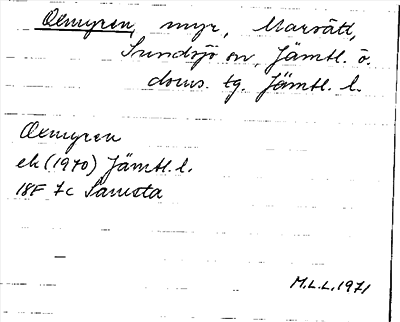 Oxmyren, myr, Marsätt,
Sundsjö sn, Jämtl. ö.
doms. tg. Jämtl. l.
Oxmyren
ek (1970) Jämtl. l.
18F 7c Samsta
M.L.L. 1971